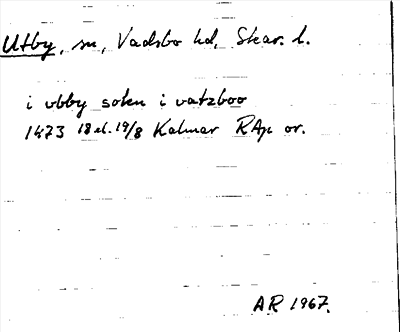 Utby, sn, Vadsbo hd, Skar. l.
i vbby sokn i vatzboo
1473 18 el. 19/8 Kalmar RAp or.
AR 1967.